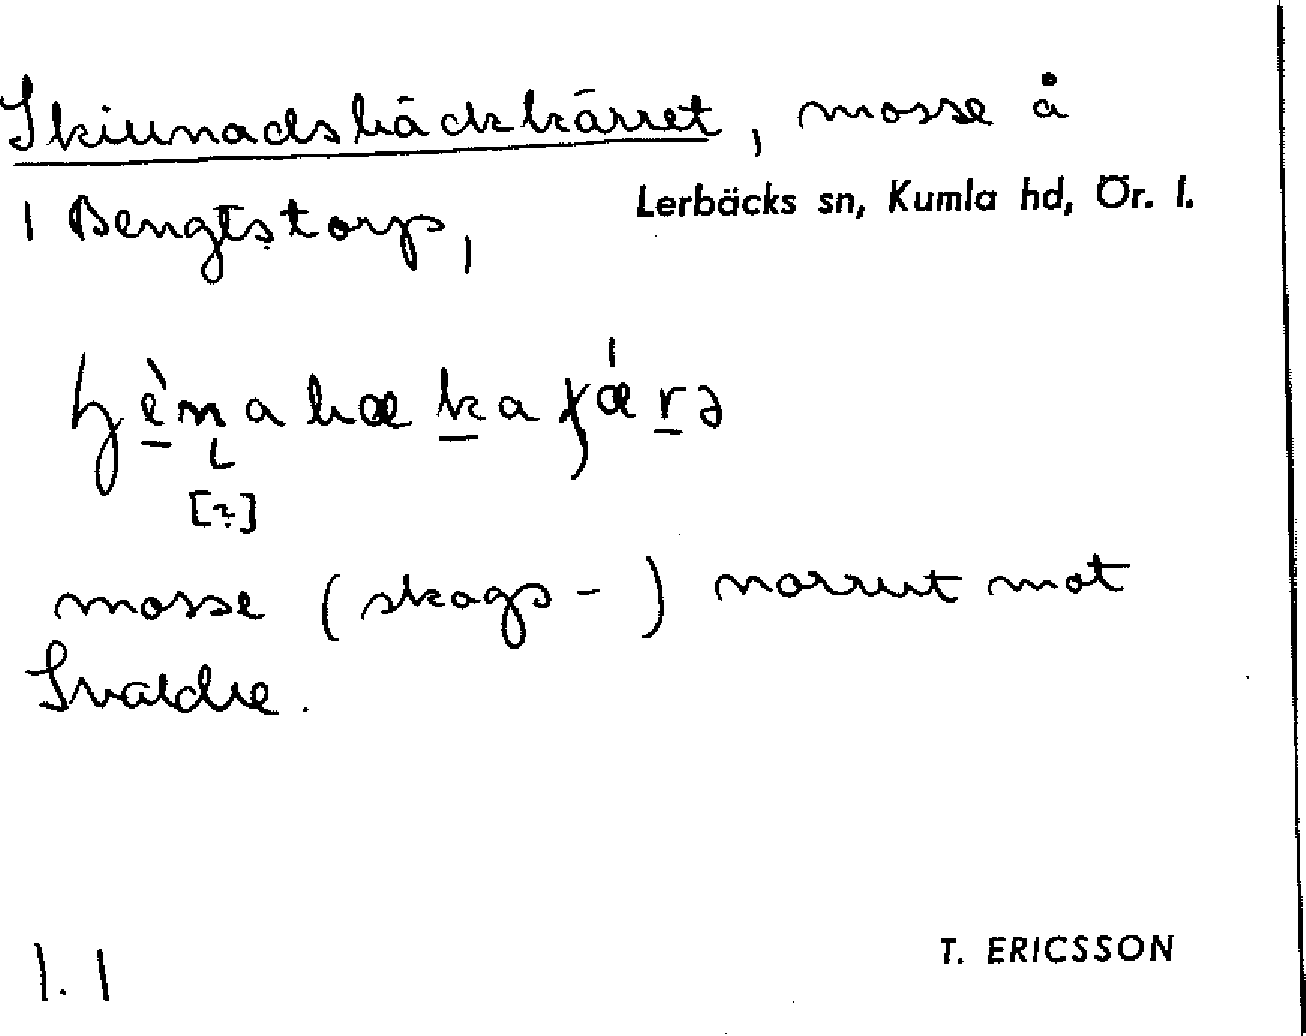 Skinnadsbäckkärret, mosse å
1 Bengtstorp, Lerbäcks sn, Kumla hd, Ör. l.
[?]
mosse (skogs-) norrut mot
Svaldre.
1.1
T. ERICSSON